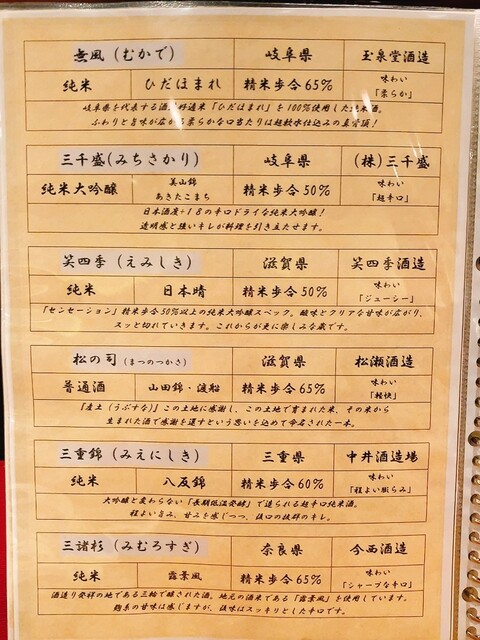 無風（むかで） 岐阜県 玉泉堂酒造
純米 ひだほまれ 精米歩合65% 味わい「柔らか」
岐阜県を代表する酒造好適米「ひだほまれ」を100%使用した純米酒。
ふわりと旨味が広がる柔らかな口当たりは超軟水仕込みの真骨頂！
三千盛（みちさかり） 岐阜県 （株）三千盛
純米大吟醸 美山錦 あきたこまち 精米歩合50% 味わい「超辛口」
日本酒度+18の辛口ドライな純米大吟醸！
透明感と強いキレが料理を引き立たせます。
笑四季（えみしき） 滋賀県 笑四季酒造
純米 日本晴 精米歩合50% 味わい「ジューシー」
「センセーション」精米歩合50%以上の純米大吟醸スペック。酸味とクリアな甘味が広がり、
スッと切れていきます。これからが更に楽しみな蔵です。
松の司（まつのつかさ） 滋賀県 松瀬酒造
普通酒 山田錦・渡船 精米歩合65% 味わい「軽快」
「産土（うぶすな）」この土地に感謝し、この土地で育まれた米、その米から
生まれた酒で感謝を還すという思いを込めて命名された一本。
三重錦（みえにしき） 三重県 中井酒造場
純米 八反錦 精米歩合60% 味わい「程よい膨らみ」
大吟醸と変わらない「長期低温発酵」で造られる超辛口純米酒。
程よい旨み、甘みを感じつつ、後口の抜群のキレ。
三諸杉（みむろすぎ） 奈良県 今西酒造
純米 露葉風 精米歩合65% 味わい「シャープな辛口」
酒造り発祥の地である三輪で醸された酒。地元の酒米である「露葉風」を使用しています。
麹系の甘味は感じますが、後味はスッキリとした辛口です。